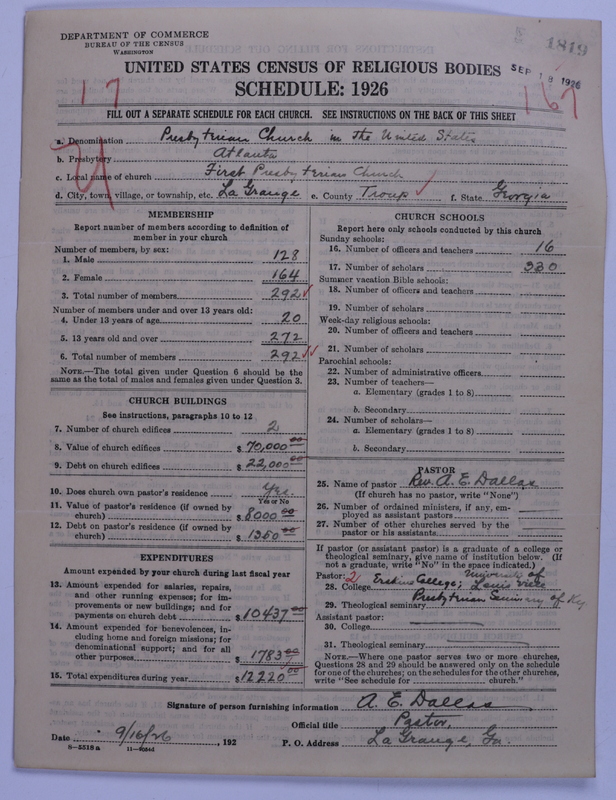 DEPARTMENT OF COMMERCE
BUREAU OF THE CENSUS
WASHINGTON
1819
UNITED STATES CENSUS OF RELIGIOUS BODIES
SEP 18 1926
SCHEDULE: 1926
17
167
FILL OUT A SEPARATE SCHEDULE FOR EACH CHURCH. SEE INSTRUCTIONS ON THE BACK OF THIS SHEET
a. Denomination Presbyterian Church in the United States
b. Presbytery Atlanta
c. Local name of church First Presbyterian Church
d. City, town, village, or township, etc. La Grange e. County Troup f. State Georgia
MEMBERSHIP
Report number of members according to definition of
member in your church
Number of members, by sex:
1. Male 128
2. Female 164
3. Total number of members 292
Number of members under and over 13 years old:
4. Under 13 years of age 20
5. 13 years old and over 272
6. Total number of members 292
NOTE.—The total given under Question 6 should be
same as the total of males and females given under Question 3.
CHURCH BUILDINGS
See instructions, paragraphs 10 to 12
7. Number of church edifices 2
8. Value of church edifices $ 70,000 00
9. Debt on church edifices $ 22,000 00
10. Does church own pastor's residence Yes
Yes or No
11. Value of pastor's residence (if owned by
church) $ 8000 00
12. Debt on pastor's residence (if owned by
church) $ 1350 00
EXPENDITURES
Amount expended by your church during last fiscal year
13. Amount expended for salaries, repairs,
and other running expenses; for im-
provements or new buildings; and for
payments on church debt $ 10437 00
14. Amount expended for benevolences, in-
cluding home and foreign missions; for
denominational support; and for all
other purposes $ 1783 00
15. Total expenditures during year $ 12220 00
CHURCH SCHOOLS
Report here only schools conducted by this church
Sunday schools:
16. Number of officers and teachers 16
17. Number of scholars 330
Summer vacation Bible schools:
18. Number of officers and teachers
19. Number of scholars
Week-day religious schools:
20. Number of officers and teachers
21. Number of scholars
Parochial schools:
22. Number of administrative officers
23. Number of teachers—
a. Elementary (grades 1 to 8)
b. Secondary
24. Number of scholars—
a. Elementary (grades 1 to 8)
b. Secondary
PASTOR
25. Name of pastor Rev. A. E. Dallas
(If church has no pastor, write "None")
26. Number of ordained ministers, if any, em-
ployed as assistant pastors
27. Number of other churches served by the
pastor or his assistants
If pastor (or assistant pastor) is a graduate of a college or
theological seminary, give name of institution below. (If
not a graduate, write "No" in the space indicated.)
Pastor: 2
28. College Erskine College; University of Louisville
29. Theological seminary Presbyterian Seminary of Ky
Assistant pastor:
30. College
31. Theological seminary
NOTE.—Where one pastor serves two or more churches,
Questions 28 and 29 should be answered only on the schedule
for one of the churches; on the schedules for the other churches,
write "See schedule for church."
Signature of person furnishing information A. E. Dallas
Official title Pastor
Date 9/16/26, 192 P. O. Address La Grange, Ga.
8—5518 a